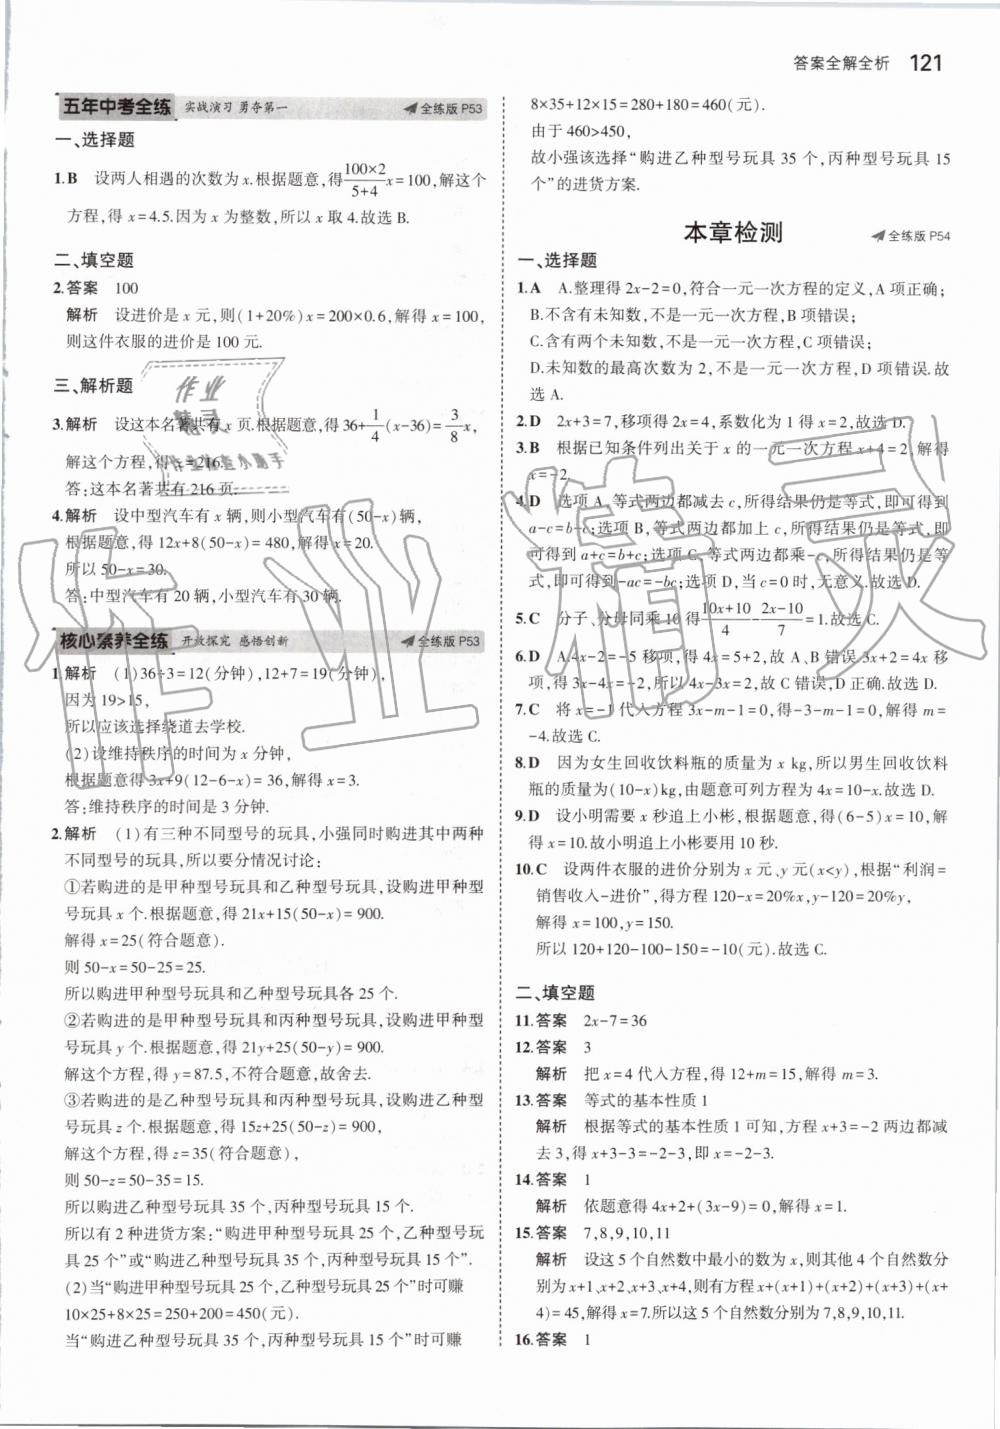 答案全解全析 121
五年中考全练 实战演习 勇夺第一 全练版 P53
一、选择题
1.B 设两人相遇的次数为 x.根据题意,得(100×2)/(5+4)x=100,解这个
方程,得 x=4.5.因为 x 为整数,所以 x 取 4.故选 B.
二、填空题
2.答案 100
解析 设进价是 x 元,则(1+20%)x=200×0.6,解得 x=100,
则这件衣服的进价是 100 元.
三、解析题
3.解析 设这本名著共有 x 页.根据题意,得 36+1/4(x-36)=3/8x,
解这个方程,得 x=216.
答:这本名著共有 216 页.
4.解析 设中型汽车有 x 辆,则小型汽车有(50-x)辆,
根据题意,得 12x+8(50-x)=480,解得 x=20.
所以 50-x=30.
答:中型汽车有 20 辆,小型汽车有 30 辆.
核心素养全练 开放探究 感悟创新 全练版 P53
1.解析 (1)36÷3=12(分钟),12+7=19(分钟),
因为 19>15,
所以应该选择绕道去学校.
(2)设维持秩序的时间为 x 分钟,
根据题意得 3x+9(12-6-x)=36,解得 x=3.
答:维持秩序的时间是 3 分钟.
2.解析 (1)有三种不同型号的玩具,小强同时购进其中两种
不同型号的玩具,所以要分情况讨论:
①若购进的是甲种型号玩具和乙种型号玩具,设购进甲种型
号玩具 x 个.根据题意,得 21x+15(50-x)=900.
解得 x=25(符合题意).
则 50-x=50-25=25.
所以购进甲种型号玩具和乙种型号玩具各 25 个.
②若购进的是甲种型号玩具和丙种型号玩具,设购进甲种型
号玩具 y 个.根据题意,得 21y+25(50-y)=900.
解这个方程,得 y=87.5,不符合题意,故舍去.
③若购进的是乙种型号玩具和丙种型号玩具,设购进乙种型
号玩具 z 个.根据题意,得 15z+25(50-z)=900,
解这个方程,得 z=35(符合题意),
则 50-z=50-35=15.
所以购进乙种型号玩具 35 个,丙种型号玩具 15 个.
所以有 2 种进货方案:“购进甲种型号玩具 25 个,乙种型号玩
具 25 个”或“购进乙种型号玩具 35 个,丙种型号玩具 15 个”.
(2)当“购进甲种型号玩具 25 个,乙种型号玩具 25 个”时可赚
10×25+8×25=250+200=450(元).
当“购进乙种型号玩具 35 个,丙种型号玩具 15 个”时可赚
8×35+12×15=280+180=460(元).
由于 460>450,
故小强该选择“购进乙种型号玩具 35 个,丙种型号玩具 15
个”的进货方案.
本章检测 全练版 P54
一、选择题
1.A A.整理得 2x-2=0,符合一元一次方程的定义,A 项正确;
B.不含有未知数,不是一元一次方程,B 项错误;
C.含有两个未知数,不是一元一次方程,C 项错误;
D.未知数的最高次数为 2,不是一元一次方程,D 项错误.故
选 A.
2.D 2x+3=7,移项得 2x=4,系数化为 1 得 x=2,故选 D.
3.B 根据已知条件列出关于 x 的一元一次方程 x+4=2,解得
x=-2.
4.D 选项 A,等式两边都减去 c,所得结果仍是等式,即可得到
a-c=b-c;选项 B,等式两边都加上 c,所得结果仍是等式,即
可得到 a+c=b+c;选项 C,等式两边都乘-c,所得结果仍是等
式,即可得到-ac=-bc;选项 D,当 c=0 时,无意义.故选 D.
5.C 分子、分母同乘 10 得(10x+10)/4-(2x-10)/7=1.故选 C.
6.D A.4x-2=-5 移项,得 4x=-5+2,故 A、B 错误.3x+2=4x 移
项,得 3x-4x=-2,所以 4x-3x=2,故 C 错误,D 正确.故选 D.
7.C 将 x=-1 代入方程 3x-m-1=0,得-3-m-1=0,解得 m=
-4.故选 C.
8.D 因为女生回收饮料瓶的质量为 x kg,所以男生回收饮料
瓶的质量为(10-x)kg,由题意可列方程为 4x=10-x.故选 D.
9.D 设小明需要 x 秒追上小彬,根据题意,得(6-5)x=10,解
得 x=10.故小明追上小彬要用 10 秒.
10.C 设两件衣服的进价分别为 x 元、y 元(x<y),根据“利润=
销售收入-进价”,得方程 120-x=20%x,y-120=20%y,
解得 x=100,y=150.
所以 120+120-100-150=-10(元).故选 C.
二、填空题
11.答案 2x-7=36
12.答案 3
解析 把 x=4 代入方程,得 12+m=15,解得 m=3.
13.答案 等式的基本性质 1
解析 根据等式的基本性质 1 可知,方程 x+3=-2 两边都减
去 3,得 x+3-3=-2-3,即 x=-2-3.
14.答案 1
解析 依题意得 4x+2+(3x-9)=0,解得 x=1.
15.答案 7,8,9,10,11
解析 设这 5 个自然数中最小的数为 x,则其他 4 个自然数分
别为 x+1、x+2、x+3、x+4,则有方程 x+(x+1)+(x+2)+(x+3)+(x+
4)=45,解得 x=7.所以这 5 个自然数分别为 7,8,9,10,11.
16.答案 1
作业精灵